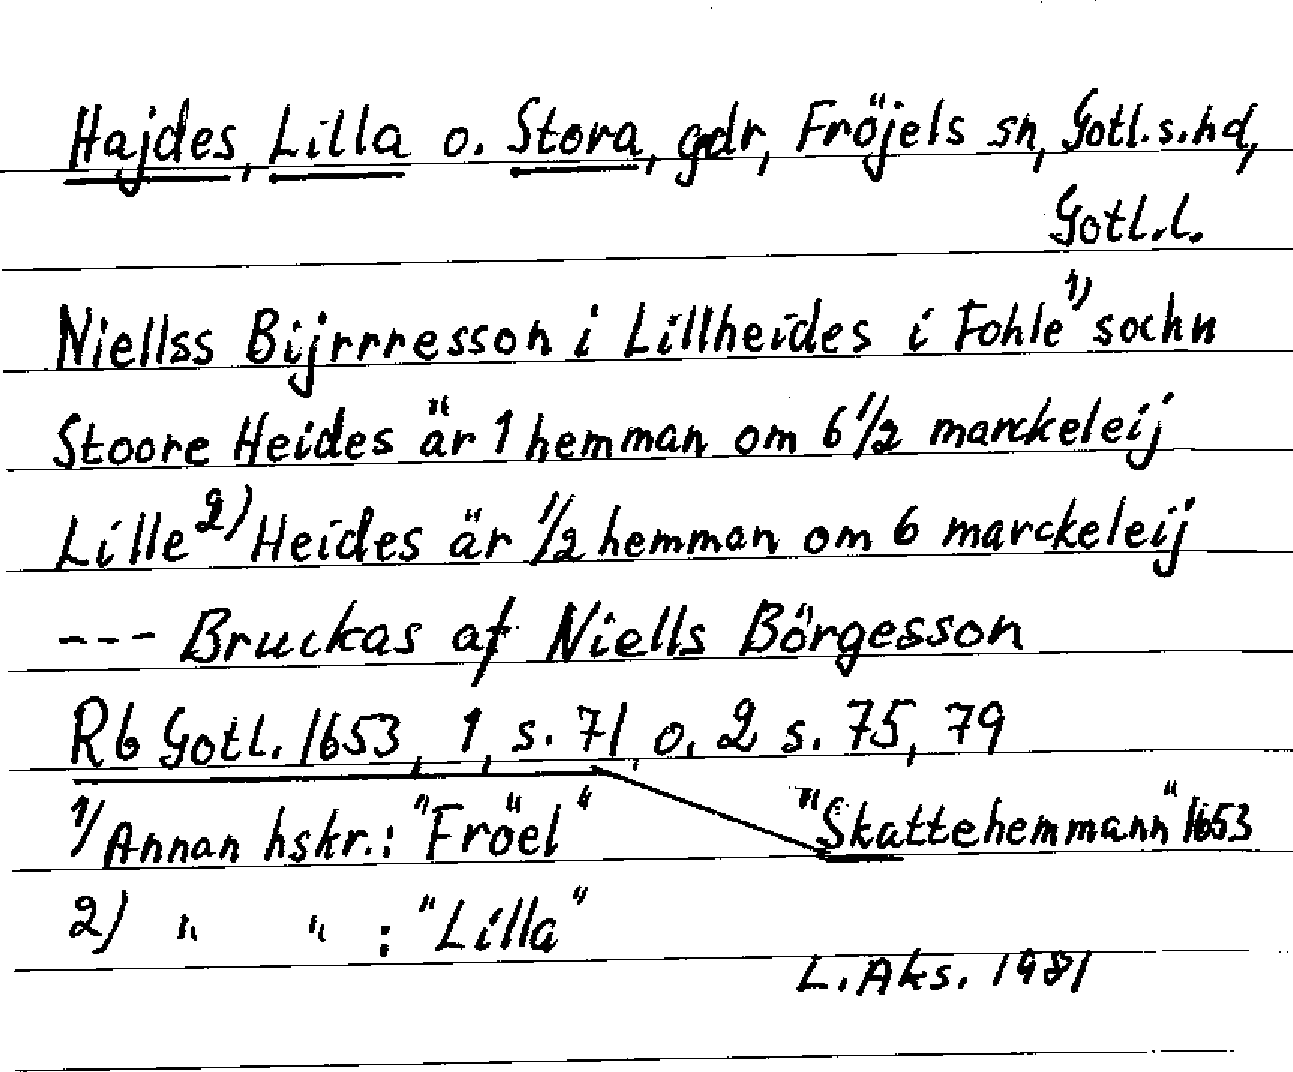 Hajdes, Lilla o. Stora, gdr, Fröjels sn, Gotl.s.hd,
Gotl.l.
Niellss Bijrrresson i Lillheides i Fohle 1) sochn
Stoore Heides är 1 hemman om 6 1/2 marckeleij
Lille 2) Heides är 1/2 hemman om 6 marckeleij
--- Bruckas af Niells Börgesson
Rb Gotl. 1653, 1, s. 71, o. 2 s. 75, 79
1) Annan hskr.: "Fröel" "Skattehemmann" 1653
2) " " : "Lilla"
L. Aks. 1981